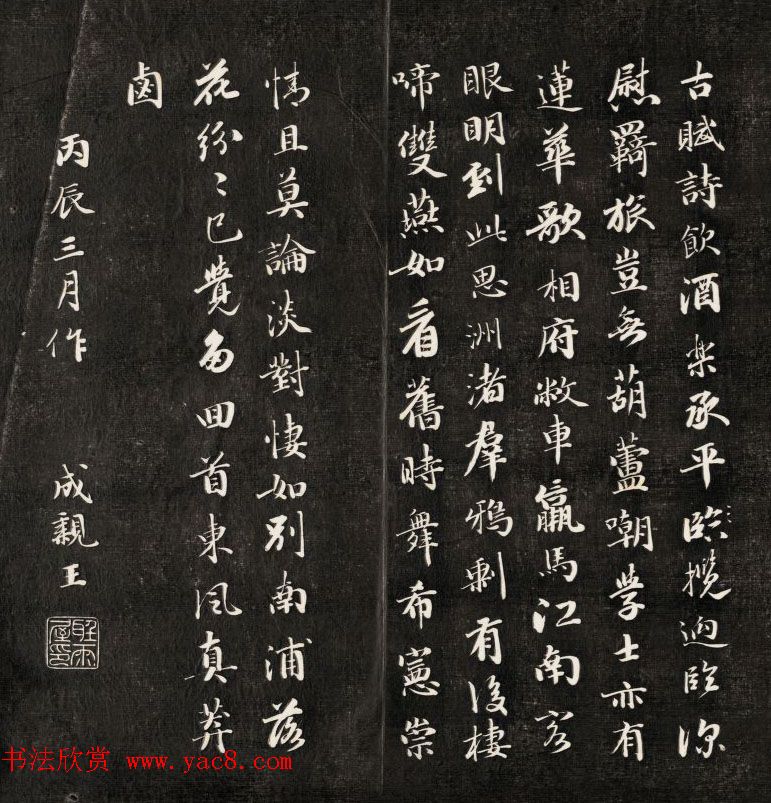 古賦詩飲酒樂承平臨揽迴臨深
慰羇旅豈無葫蘆嘲學士亦有
蓮華歌相府敝車羸馬江南客
眼明到此思洲渚群鴉剩有後棲
啼雙燕如看舊時舞希憲崇
情且莫論淡對悽如別南浦落
花紛〻已覺多回首東風真莽
鹵
丙辰三月作
成親王
书法欣赏 www.yac8.com